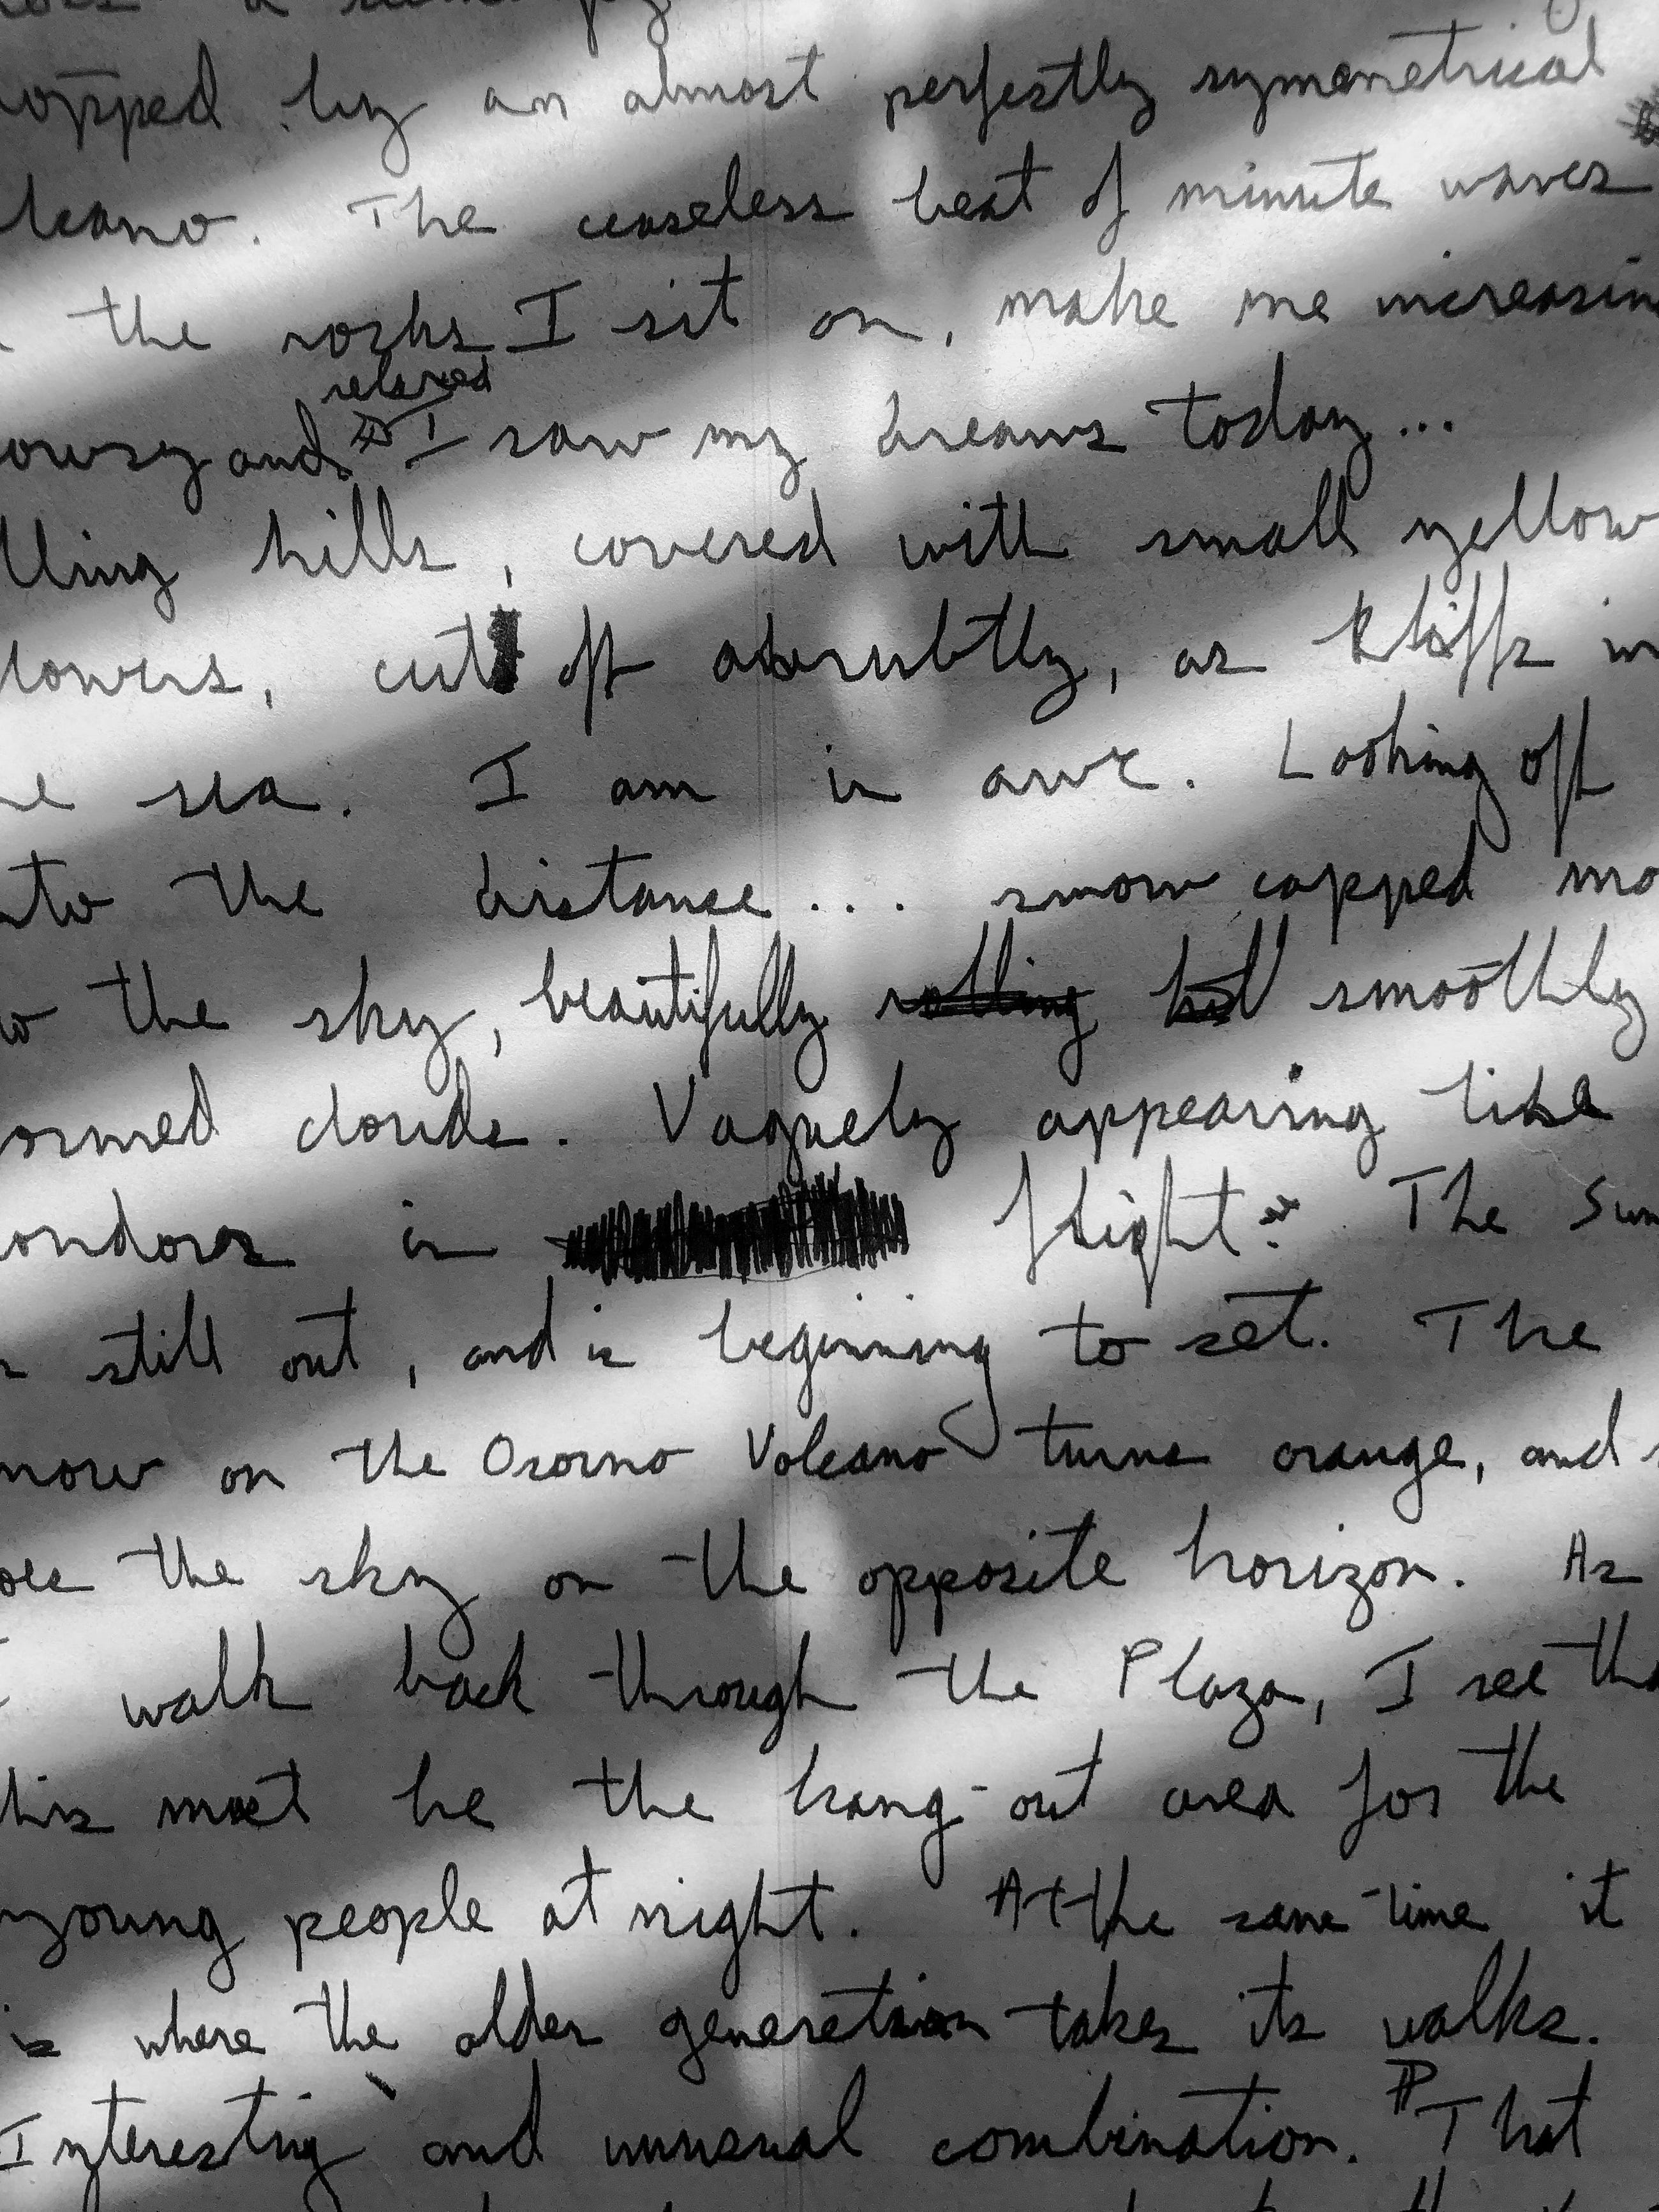 opped by an almost perfectly symmetrical
lcano. The ceaseless beat of minute waves
the rocks I sit on, make me increasin
relaxed
owsy and I saw my dreams today...
lling hills, covered with small yellow
lowers, cut off abrubtly, as kliffs in
he sea. I am in awe. Looking off
nto the distance... snow capped mo
o the sky, beautifully rolling hil smoothly
ormed clouds. Vaguely appearing like
ondores in flight. The Sun
still out, and is beginning to set. The
now on the Osorno Volcano turns orange, and
oes the sky on the opposite horizon. As
I walk back through the Plaza, I see tha
his must be the hang-out area for the
young people at night. At the same time it
is where the older generation takes its walks.
Interesting and unusual combination. ¶ That